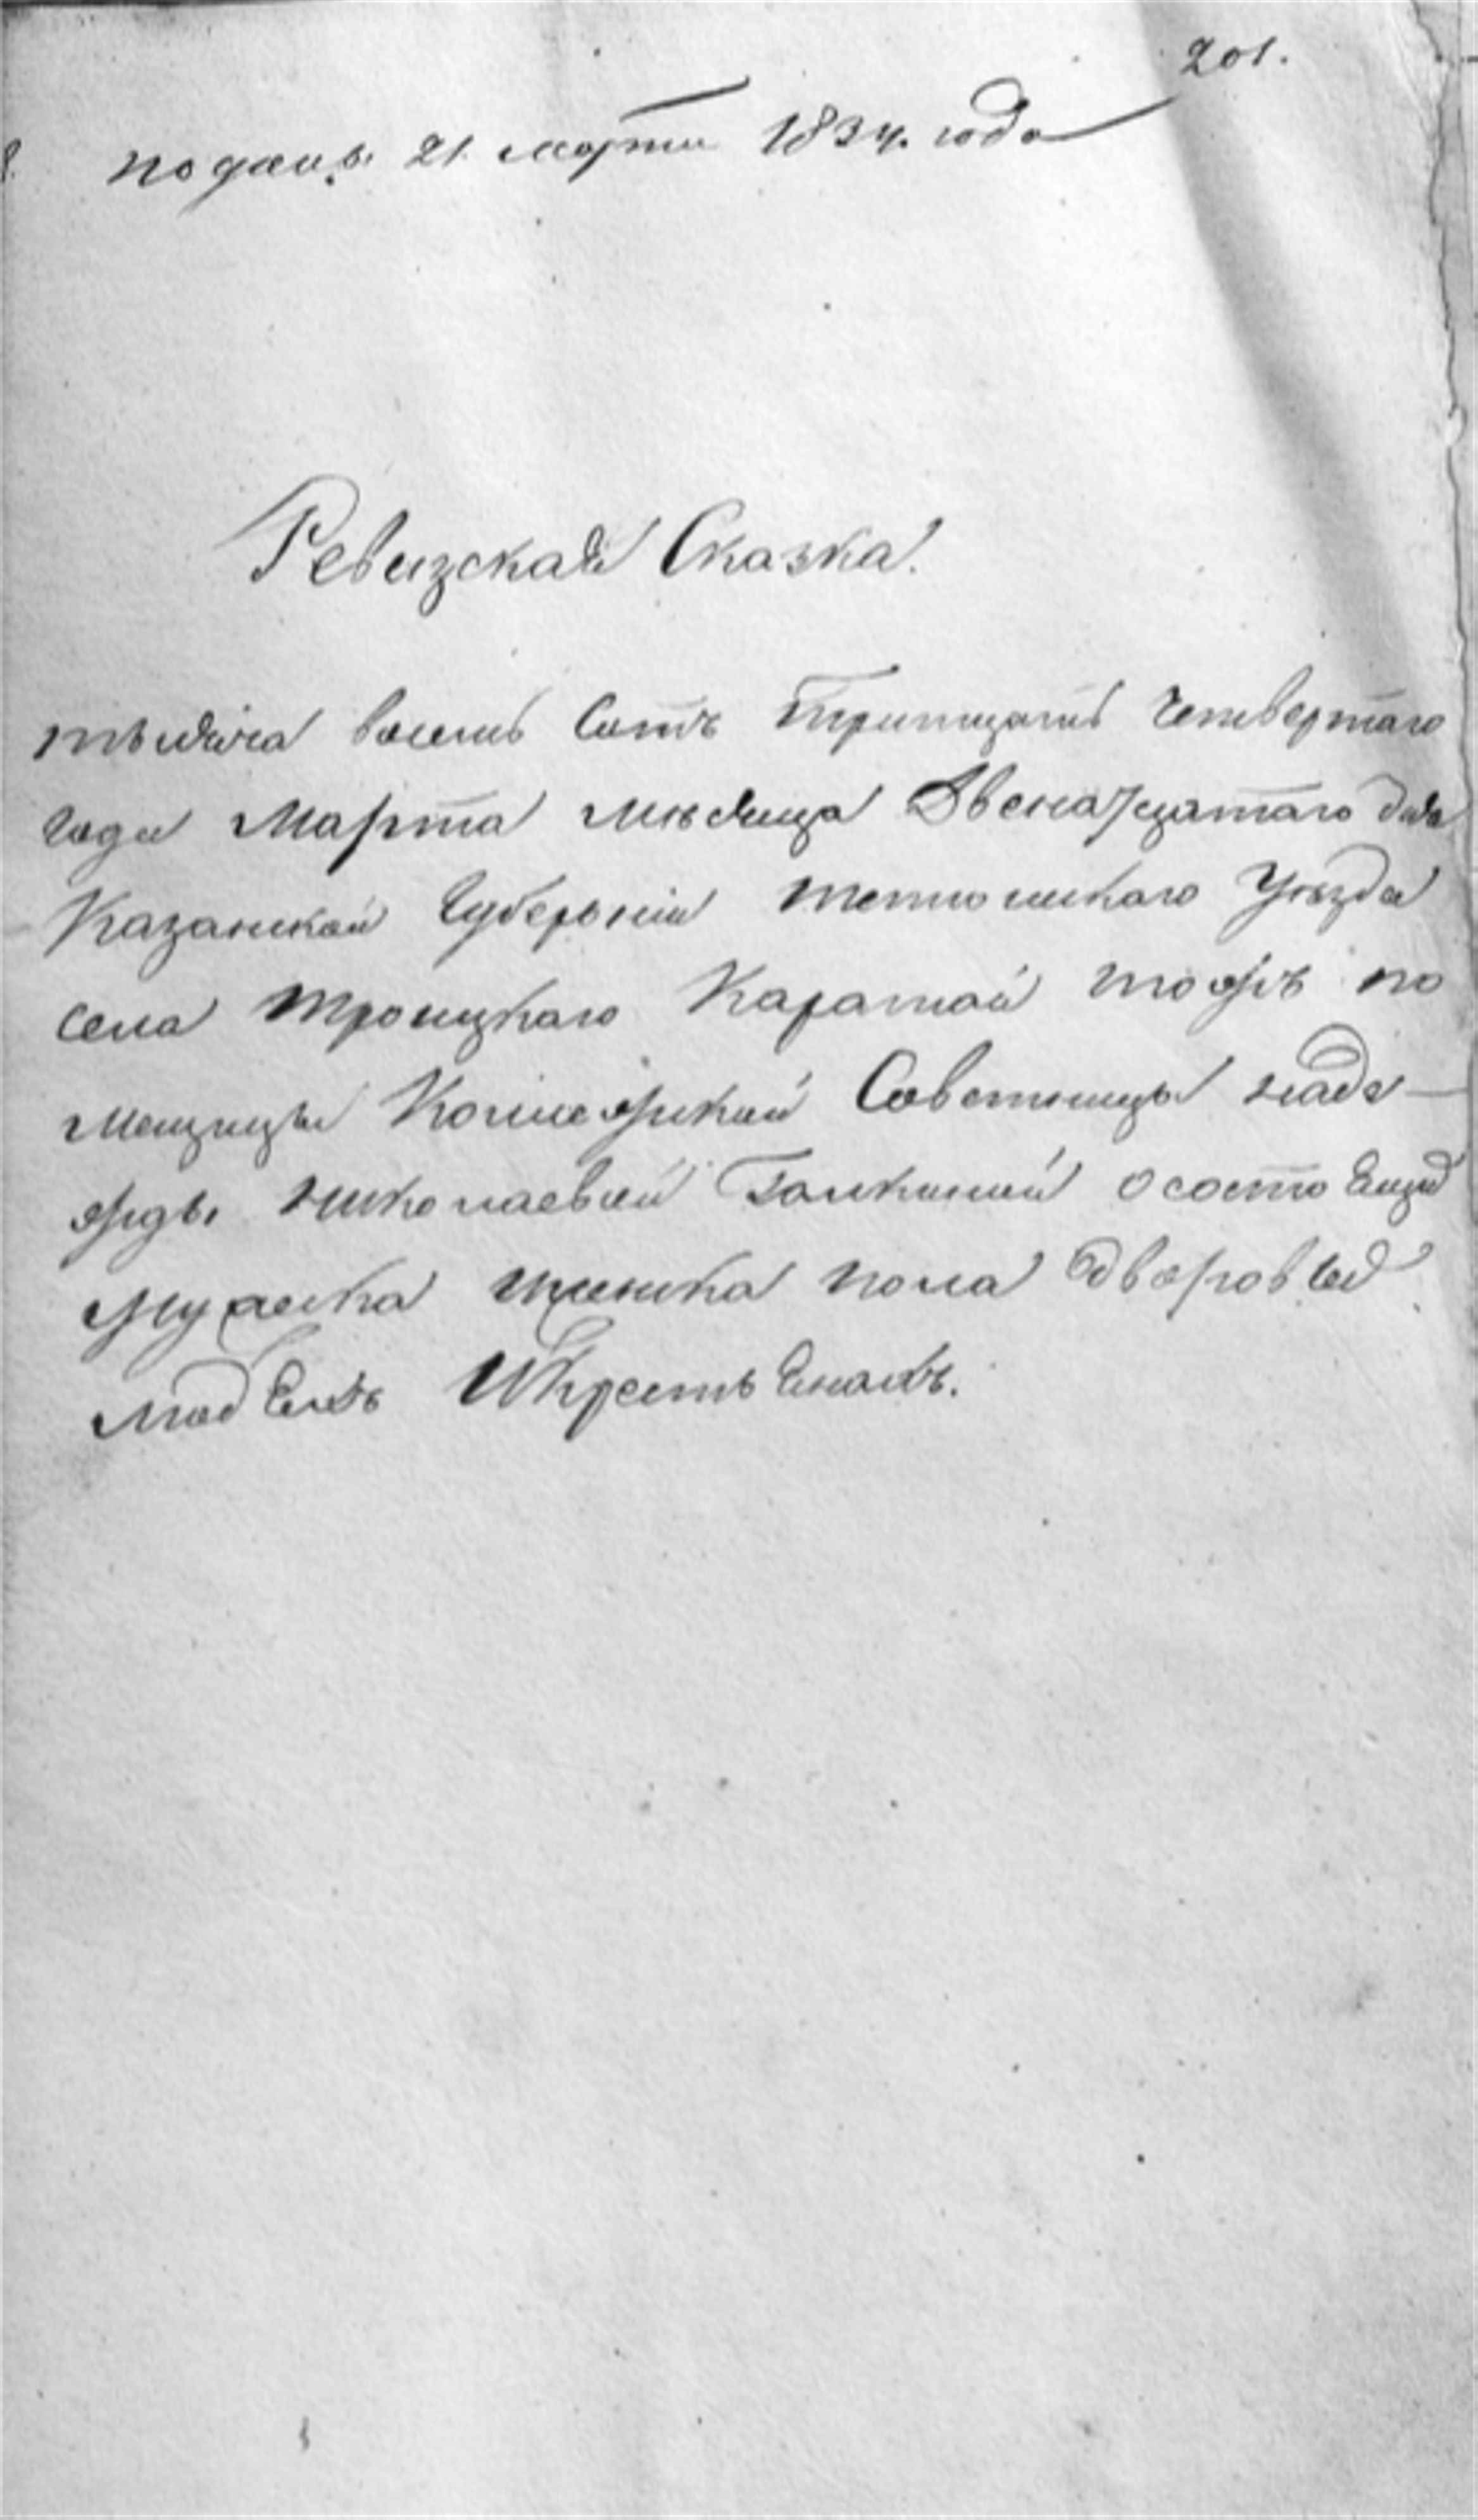 201.
поданъ 21. марта 1834. года
Ревизская Сказка.
тысяча восемь Сотъ Тритцать Четвертаго
Года Марта месяца Двенадцатаго дня
Казанской Губерьнiи тетюшскаго Уезда
села троицкаго Каратай тожъ по
мещицы Колежской Советницы наде
жды николаевной Галкиной осостоящих
Мужеска женска пола дворовых
людяхъ Икрестьянахъ.